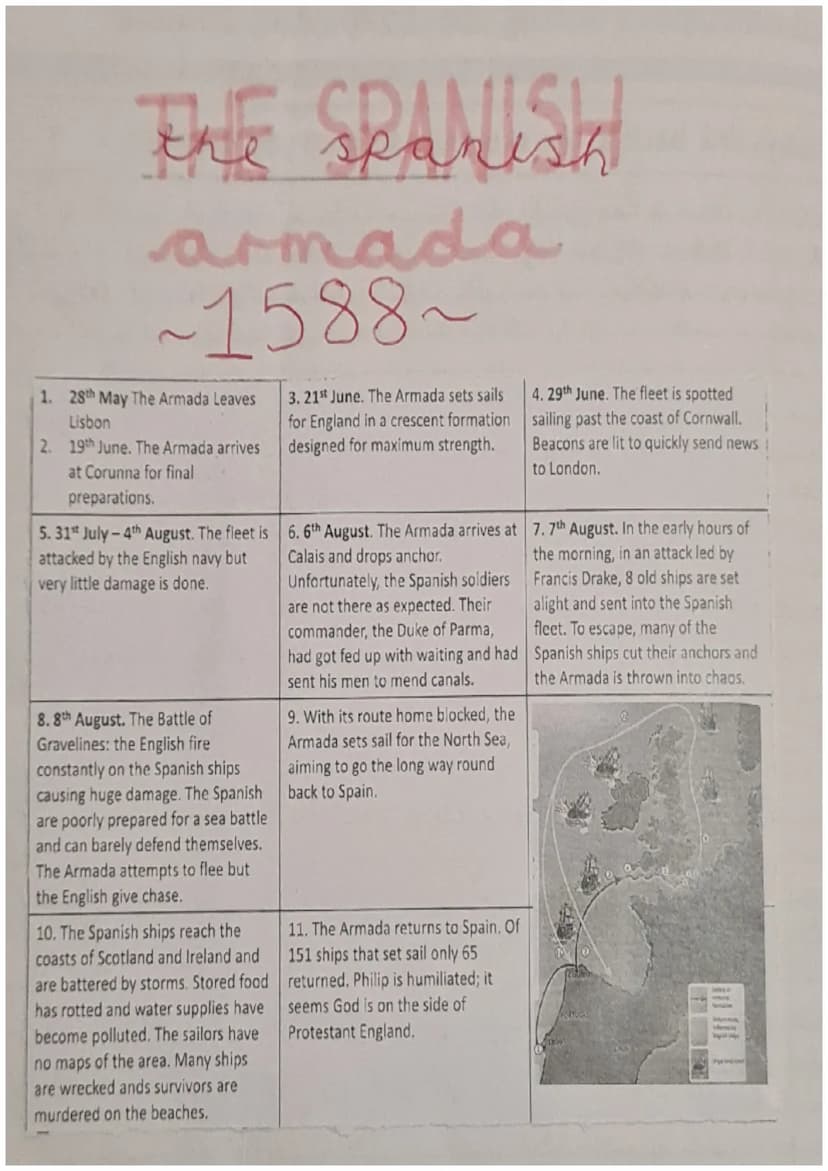 THE SPANISH
the spanish
armada
~1588~
1. 28th May The Armada Leaves
Lisbon
2. 19th June. The Armada arrives
at Corunna for final
preparations.
3. 21st June. The Armada sets sails
for England in a crescent formation
designed for maximum strength.
4. 29th June. The fleet is spotted
sailing past the coast of Cornwall.
Beacons are lit to quickly send news
to London.
5. 31st July – 4th August. The fleet is
attacked by the English navy but
very little damage is done.
6. 6th August. The Armada arrives at
Calais and drops anchor.
Unfortunately, the Spanish soldiers
are not there as expected. Their
commander, the Duke of Parma,
had got fed up with waiting and had
sent his men to mend canals.
7. 7th August. In the early hours of
the morning, in an attack led by
Francis Drake, 8 old ships are set
alight and sent into the Spanish
fleet. To escape, many of the
Spanish ships cut their anchors and
the Armada is thrown into chaos.
8. 8th August. The Battle of
Gravelines: the English fire
constantly on the Spanish ships
causing huge damage. The Spanish
are poorly prepared for a sea battle
and can barely defend themselves.
The Armada attempts to flee but
the English give chase.
9. With its route home blocked, the
Armada sets sail for the North Sea,
aiming to go the long way round
back to Spain.
10. The Spanish ships reach the
coasts of Scotland and Ireland and
are battered by storms. Stored food
has rotted and water supplies have
become polluted. The sailors have
no maps of the area. Many ships
are wrecked ands survivors are
murdered on the beaches.
11. The Armada returns to Spain. Of
151 ships that set sail only 65
returned. Philip is humiliated; it
seems God is on the side of
Protestant England.